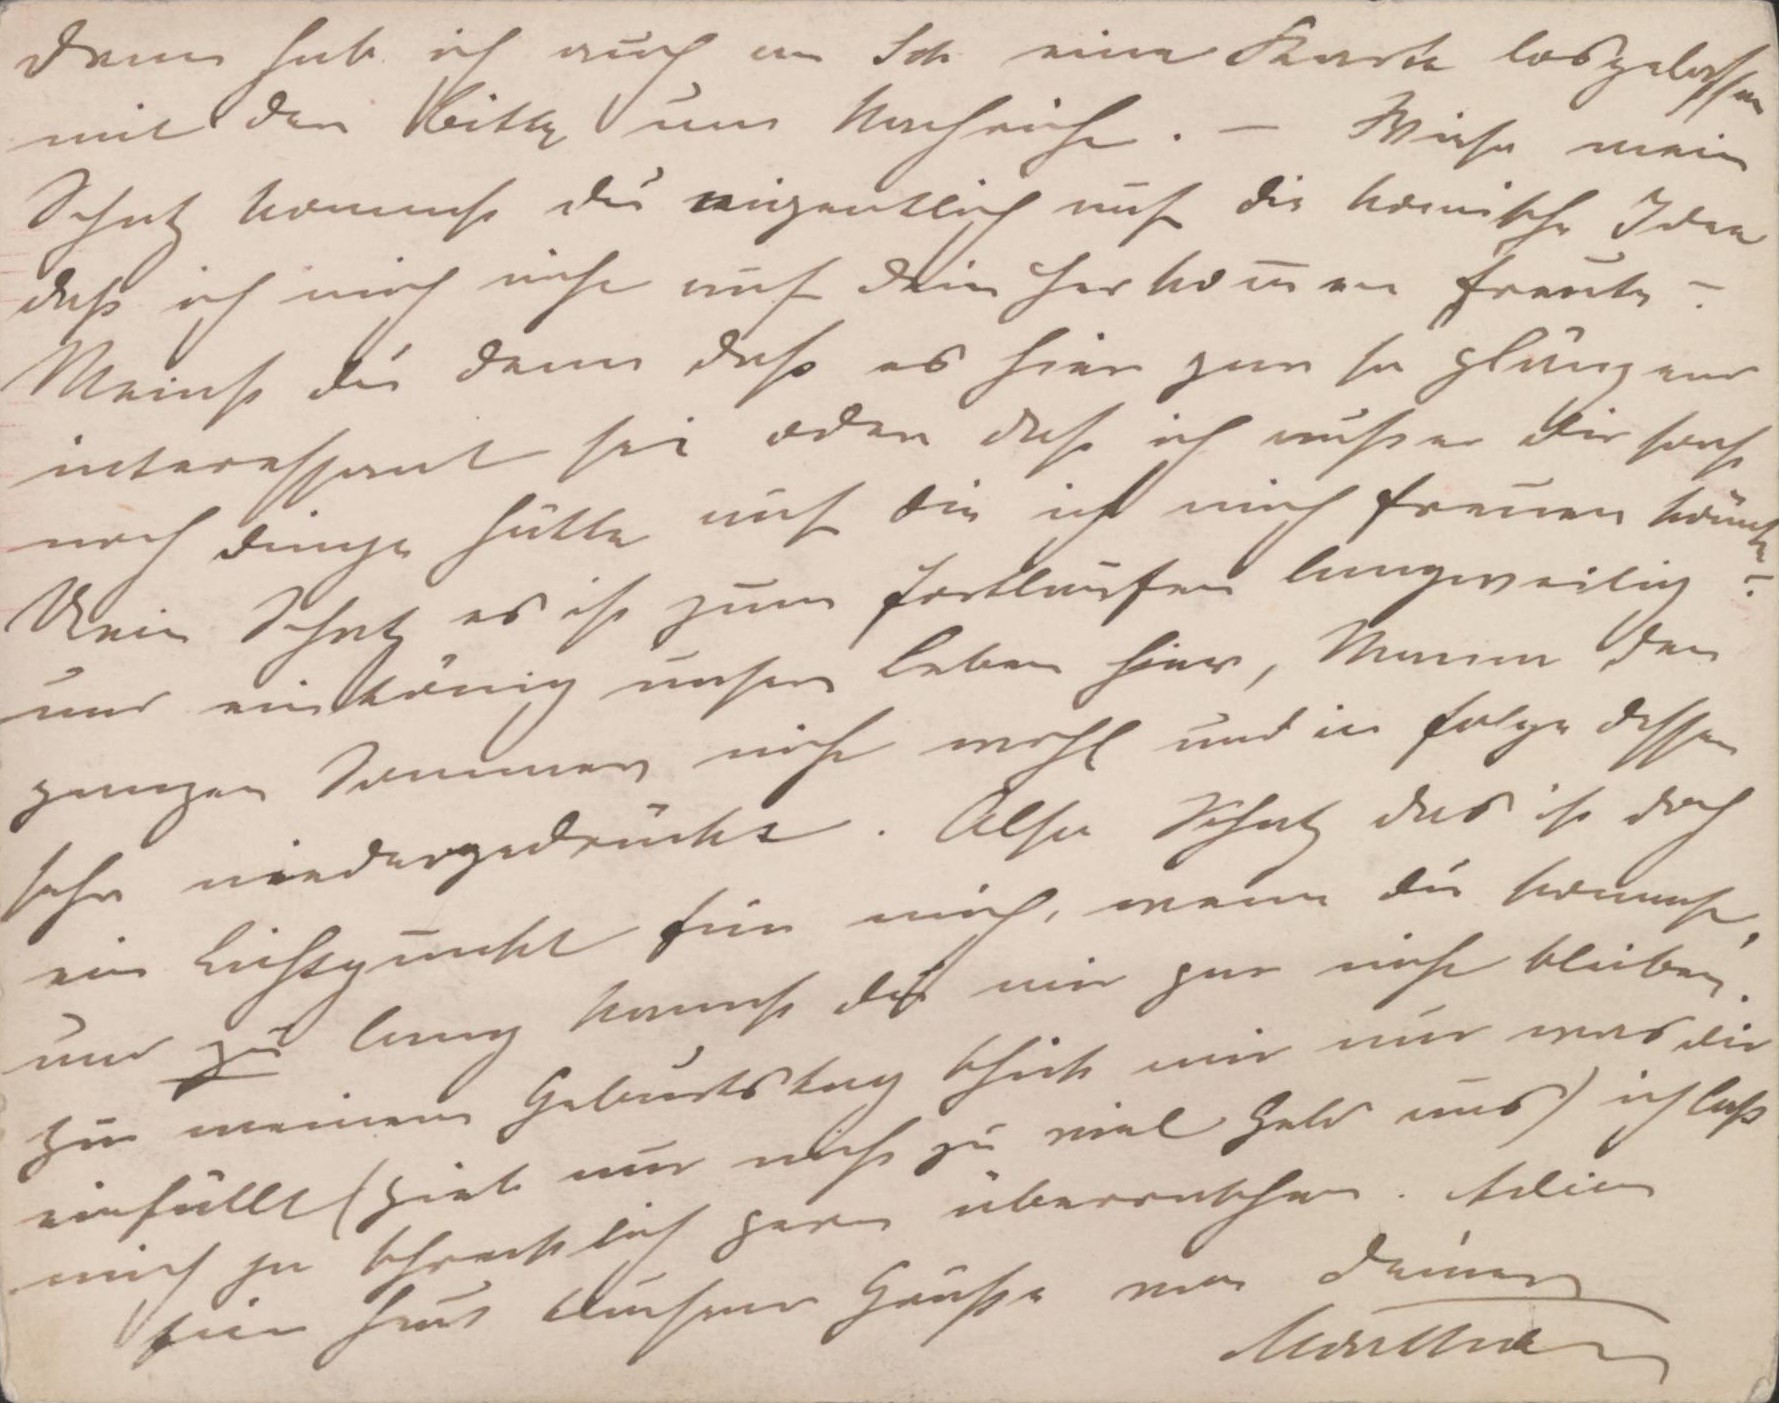 Dann hab ich auch an Sch eine Karte losgelassen
mit der Bitte um Nachricht. – Wieso mein
Schatz kommst du eigentlich auf die komische Idee
daß ich mich nicht auf dein Herkommen freute –.
Meinst du denn daß es hier gar so glänzend
interessant sei oder daß ich außer dir sonst
noch dinge hätte auf die ich mich freuen könnte
Nein Schatz es ist zum fortlaufen langweilig –.
und eintönig unser Leben hier, Mama den
ganzen Sommer nicht wohl und in folge dessen
sehr niedergedrückt. Also Schatz das ist doch
ein Lichtpunkt für mich, wenn du kommst,
und zu lang kannst du mir gar nicht bleiben.
Zu meinem Geburtstag schick mir nur was dir
einfällt (gieb nur nicht zu viel Geld aus) ich laß
mich ja schrecklich gern überraschen. Adieu
hundert tausend Grüße von Deiner
Martha